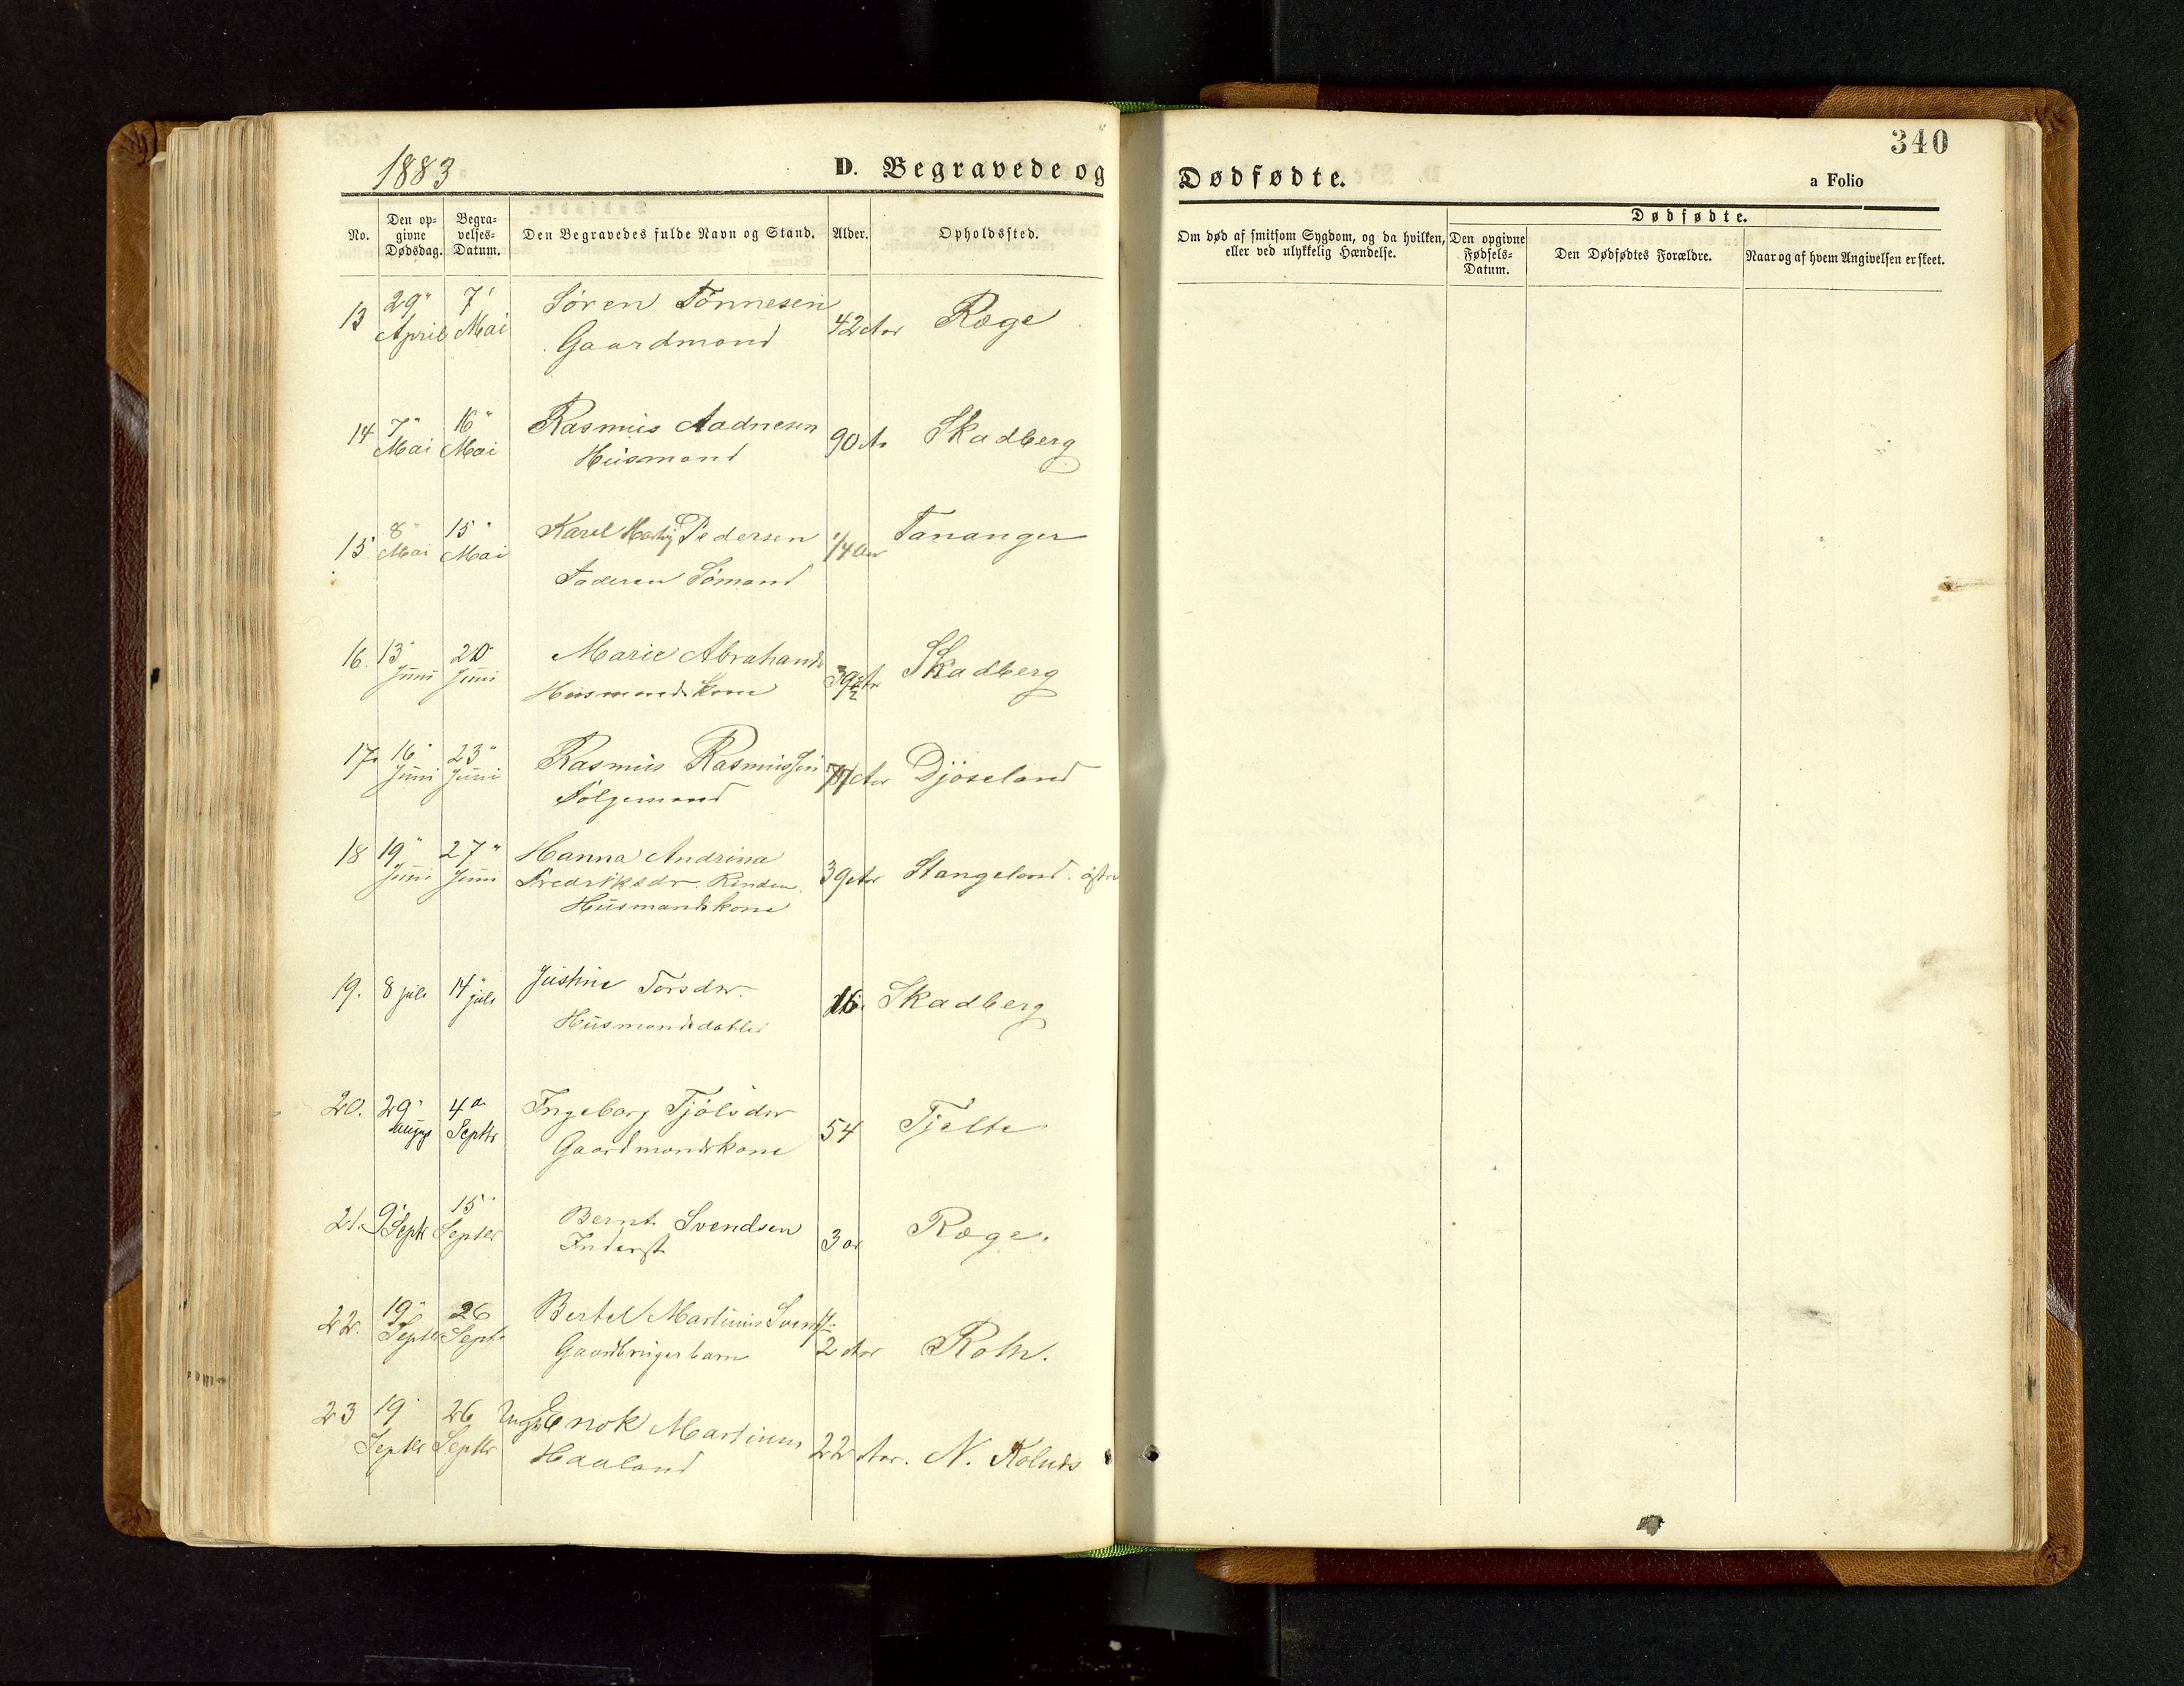 1883
D. Begravede og
Dødfødte.
a Folio
340
No.
Den op-
givne
Dødsdag.
Begra-
velses-
Datum.
Den Begravedes fulde Navn og Stand.
Alder.
Opholdssted.
Om død af smitsom Sygdom, og da hvilken,
eller ved ulykkelig Hændelse.
Dødfødte.
Den opgivne
Fødsels-
Datum.
Den Dødfødtes Forældre.
Naar og af hvem Angivelsen er skeet.
13 29" April 7' Mai Søren Tönnesen 42 Aar Ræge
Gaardmand
14 7" Mai 16" Mai Rasmus Aadnesen 90 A. Skadberg
Husmand
15 8" Mai 15" Mai Karel Pedersen 1/4 Aar Tananger
Faderen Sömand
16. 13 Juni 20 Juni Marie Abrahams Skadberg
Husmandskone
17. 16 Juni 23" Juni Rasmus Rasmussen 77 Aar Djöseland
Fölgemand
18 19" Juni 27" Juni Hanna Andrina
Fredriksdr. 39 Aar Stangeland östre
Husmandskone
19. 8 juli 14" juli Justine Torsdr. 16 Skadberg
Husmandsdatter
20. 29" August 4de Septbr Ingeborg Tjölsdr 54 Tjelte
Gaardmandskone
21. 9' Septr 15' Septbr Bernt Svendsen 3 ar Ræge.
Inderst
22. 19" Septbr 26 Septr Bertel Martinius 1/2 Aar Roth.
Gaardbrugerbarn
23 19' Septbr 26 Septbr Ungk. Enok Martinius 22 Aar. N.
Haaland